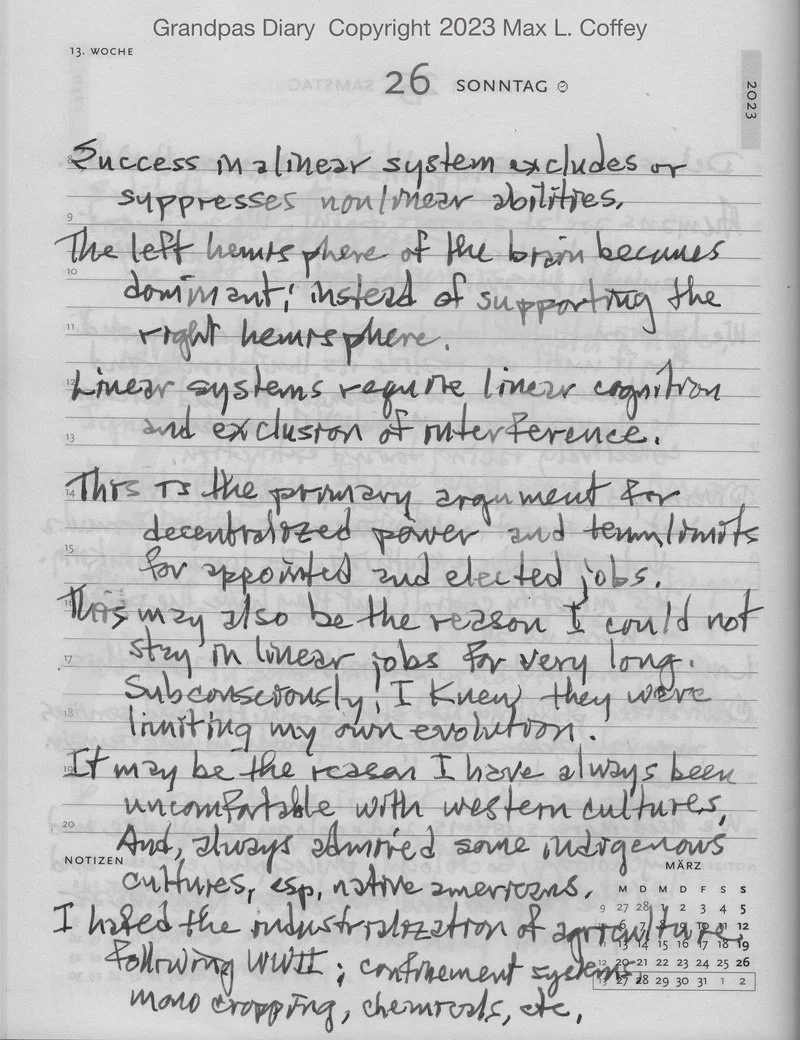 Grandpas Diary Copyright 2023 Max L. Coffey
13. WOCHE
26 SONNTAG
2023
8 Success in a linear system excludes or
suppresses nonlinear abilities.
9
The left hemisphere of the brain becomes
10
dominant; instead of supporting the
11
right hemisphere.
12 Linear systems require linear cognition
and exclusion of interference.
13
14 This is the primary argument for
decentralized power and term limits
15
for appointed and elected jobs.
16 This may also be the reason I could not
17 stay in linear jobs for very long.
Subconsciously, I knew they were
18
limiting my own evolution.
19 It may be the reason I have always been
uncomfortable with western cultures,
20
And, always admired some indigenous
NOTIZEN
MÄRZ
cultures, esp. native americans.
M D M D F S S
9 27 28 1 2 3 4 5
I hated the industrialization of agriculture
6 7 8 9 10 11 12
13 14 15 16 17 18 19
following WWII; confinement systems,
12 20 21 22 23 24 25 26
13 27 28 29 30 31 1 2
mono cropping, chemicals, etc.